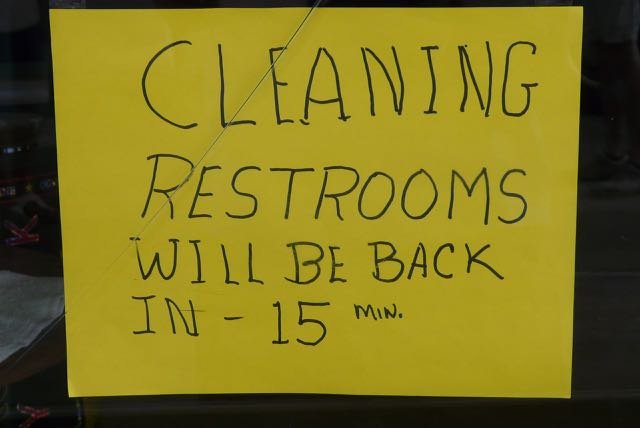 CLEANING
RESTROOMS
WILL BE BACK
IN - 15 MIN.